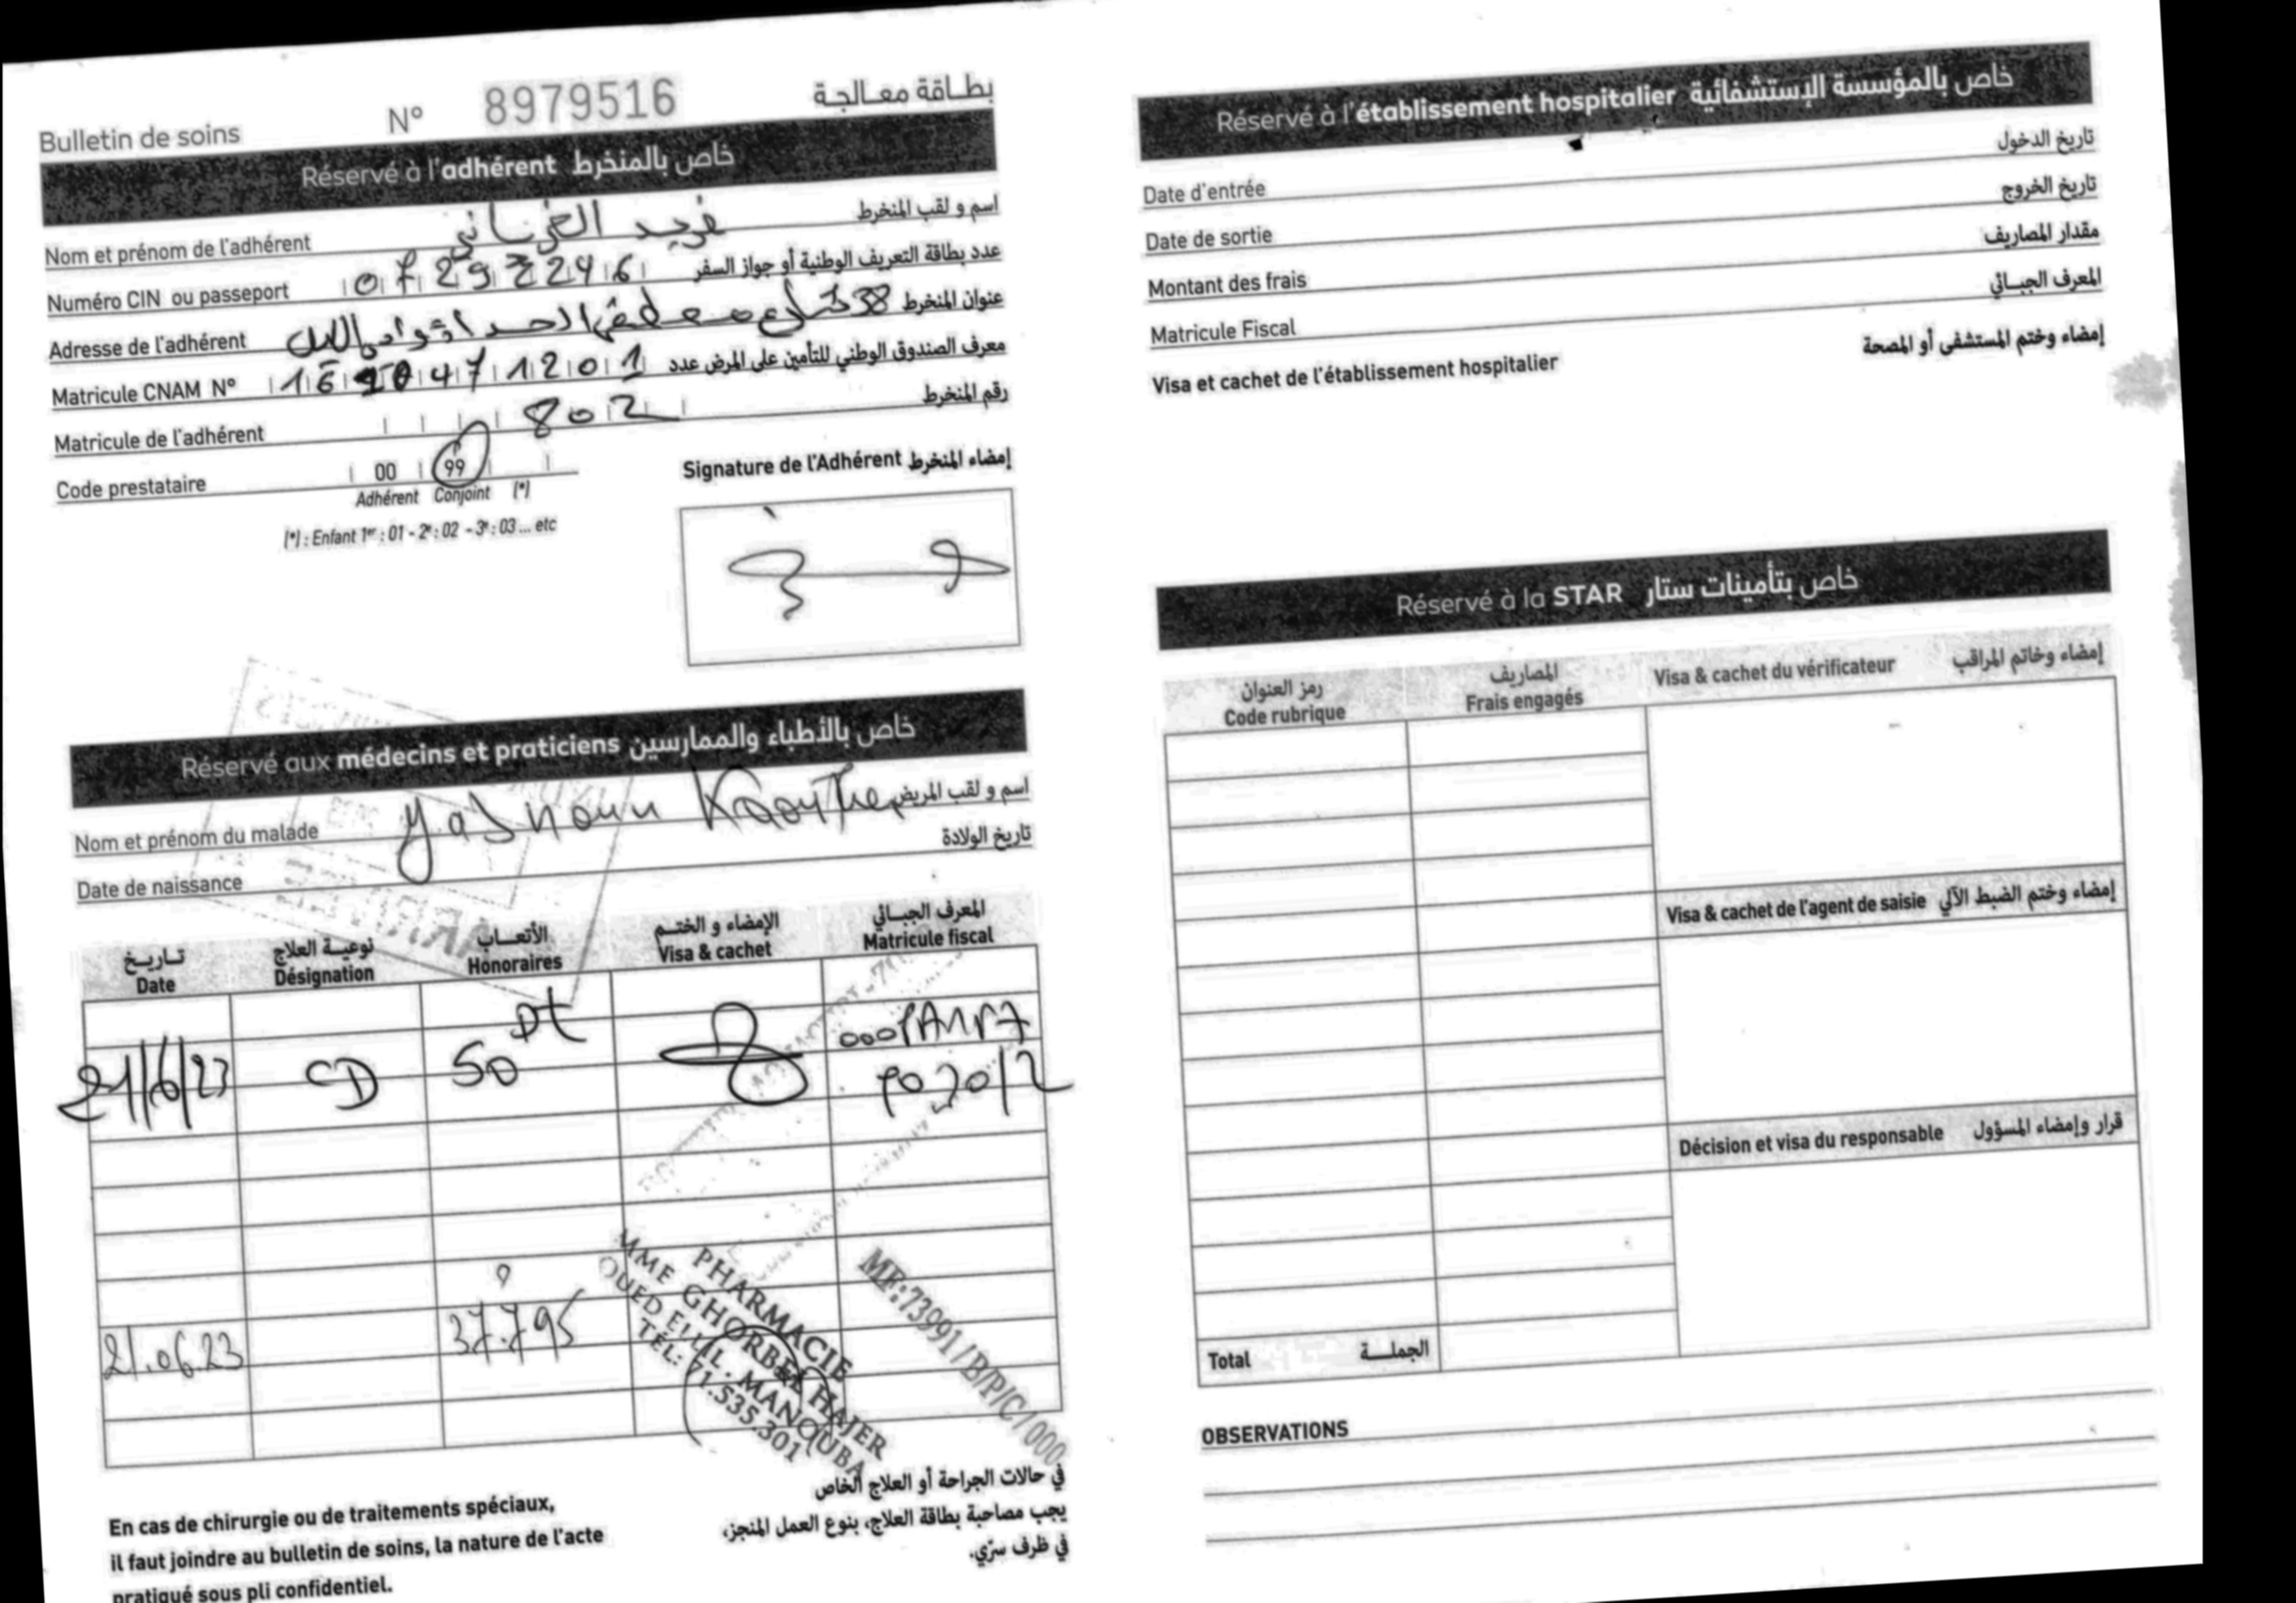 Bulletin de soins N° 8979516 بطـاقة معـالجـة
Réservé à l'adhérent خاص بالمنخرط
Nom et prénom de l'adhérent فريد الغزياني اسم و لقب المنخرط
Numéro CIN ou passeport عدد بطاقة التعريف الوطنية أو جواز السفر
Adresse de l'adhérent 38 شارع عنوان المنخرط
Matricule CNAM N° معرف الصندوق الوطني للتأمين على المرض عدد
Matricule de l'adhérent 802 رقم المنخرط
Code prestataire 00 99
Adhérent Conjoint (*)
(*) : Enfant 1er : 01 - 2e : 02 - 3e : 03 ... etc
Signature de l'Adhérent إمضاء المنخرط
Réservé aux médecins et praticiens خاص بالأطباء والممارسين
Nom et prénom du malade اسم و لقب المريض
Date de naissance تاريخ الولادة
تـاريـخ نوعيـة العلاج الأتعـاب الإمضاء و الختـم المعرف الجبـائي
Date Désignation Honoraires Visa & cachet Matricule fiscal
21/6/23 CD 50 Dt
21.06.23 37.795
PHARMACIE
MME GHORBEL HAJER
OUED ELLIL . MANOUBA
TÉL: 71.535.301
MF:73991/B/P/C/000
En cas de chirurgie ou de traitements spéciaux,
il faut joindre au bulletin de soins, la nature de l'acte
pratiqué sous pli confidentiel.
في حالات الجراحة أو العلاج الخاص
يجب مصاحبة بطاقة العلاج، بنوع العمل المنجز،
في ظرف سرّي.
Réservé à l'établissement hospitalier خاص بالمؤسسة الإستشفائية
Date d'entrée تاريخ الدخول
Date de sortie تاريخ الخروج
Montant des frais مقدار المصاريف
Matricule Fiscal المعرف الجبـائي
Visa et cachet de l'établissement hospitalier إمضاء وختم المستشفى أو المصحة
Réservé à la STAR خاص بتأمينات ستار
رمز العنوان المصاريف Visa & cachet du vérificateur إمضاء وخاتم المراقب
Code rubrique Frais engagés
Visa & cachet de l'agent de saisie إمضاء وختم الضبط الآلي
Décision et visa du responsable قرار وإمضاء المسؤول
Total الجملـــة
OBSERVATIONS